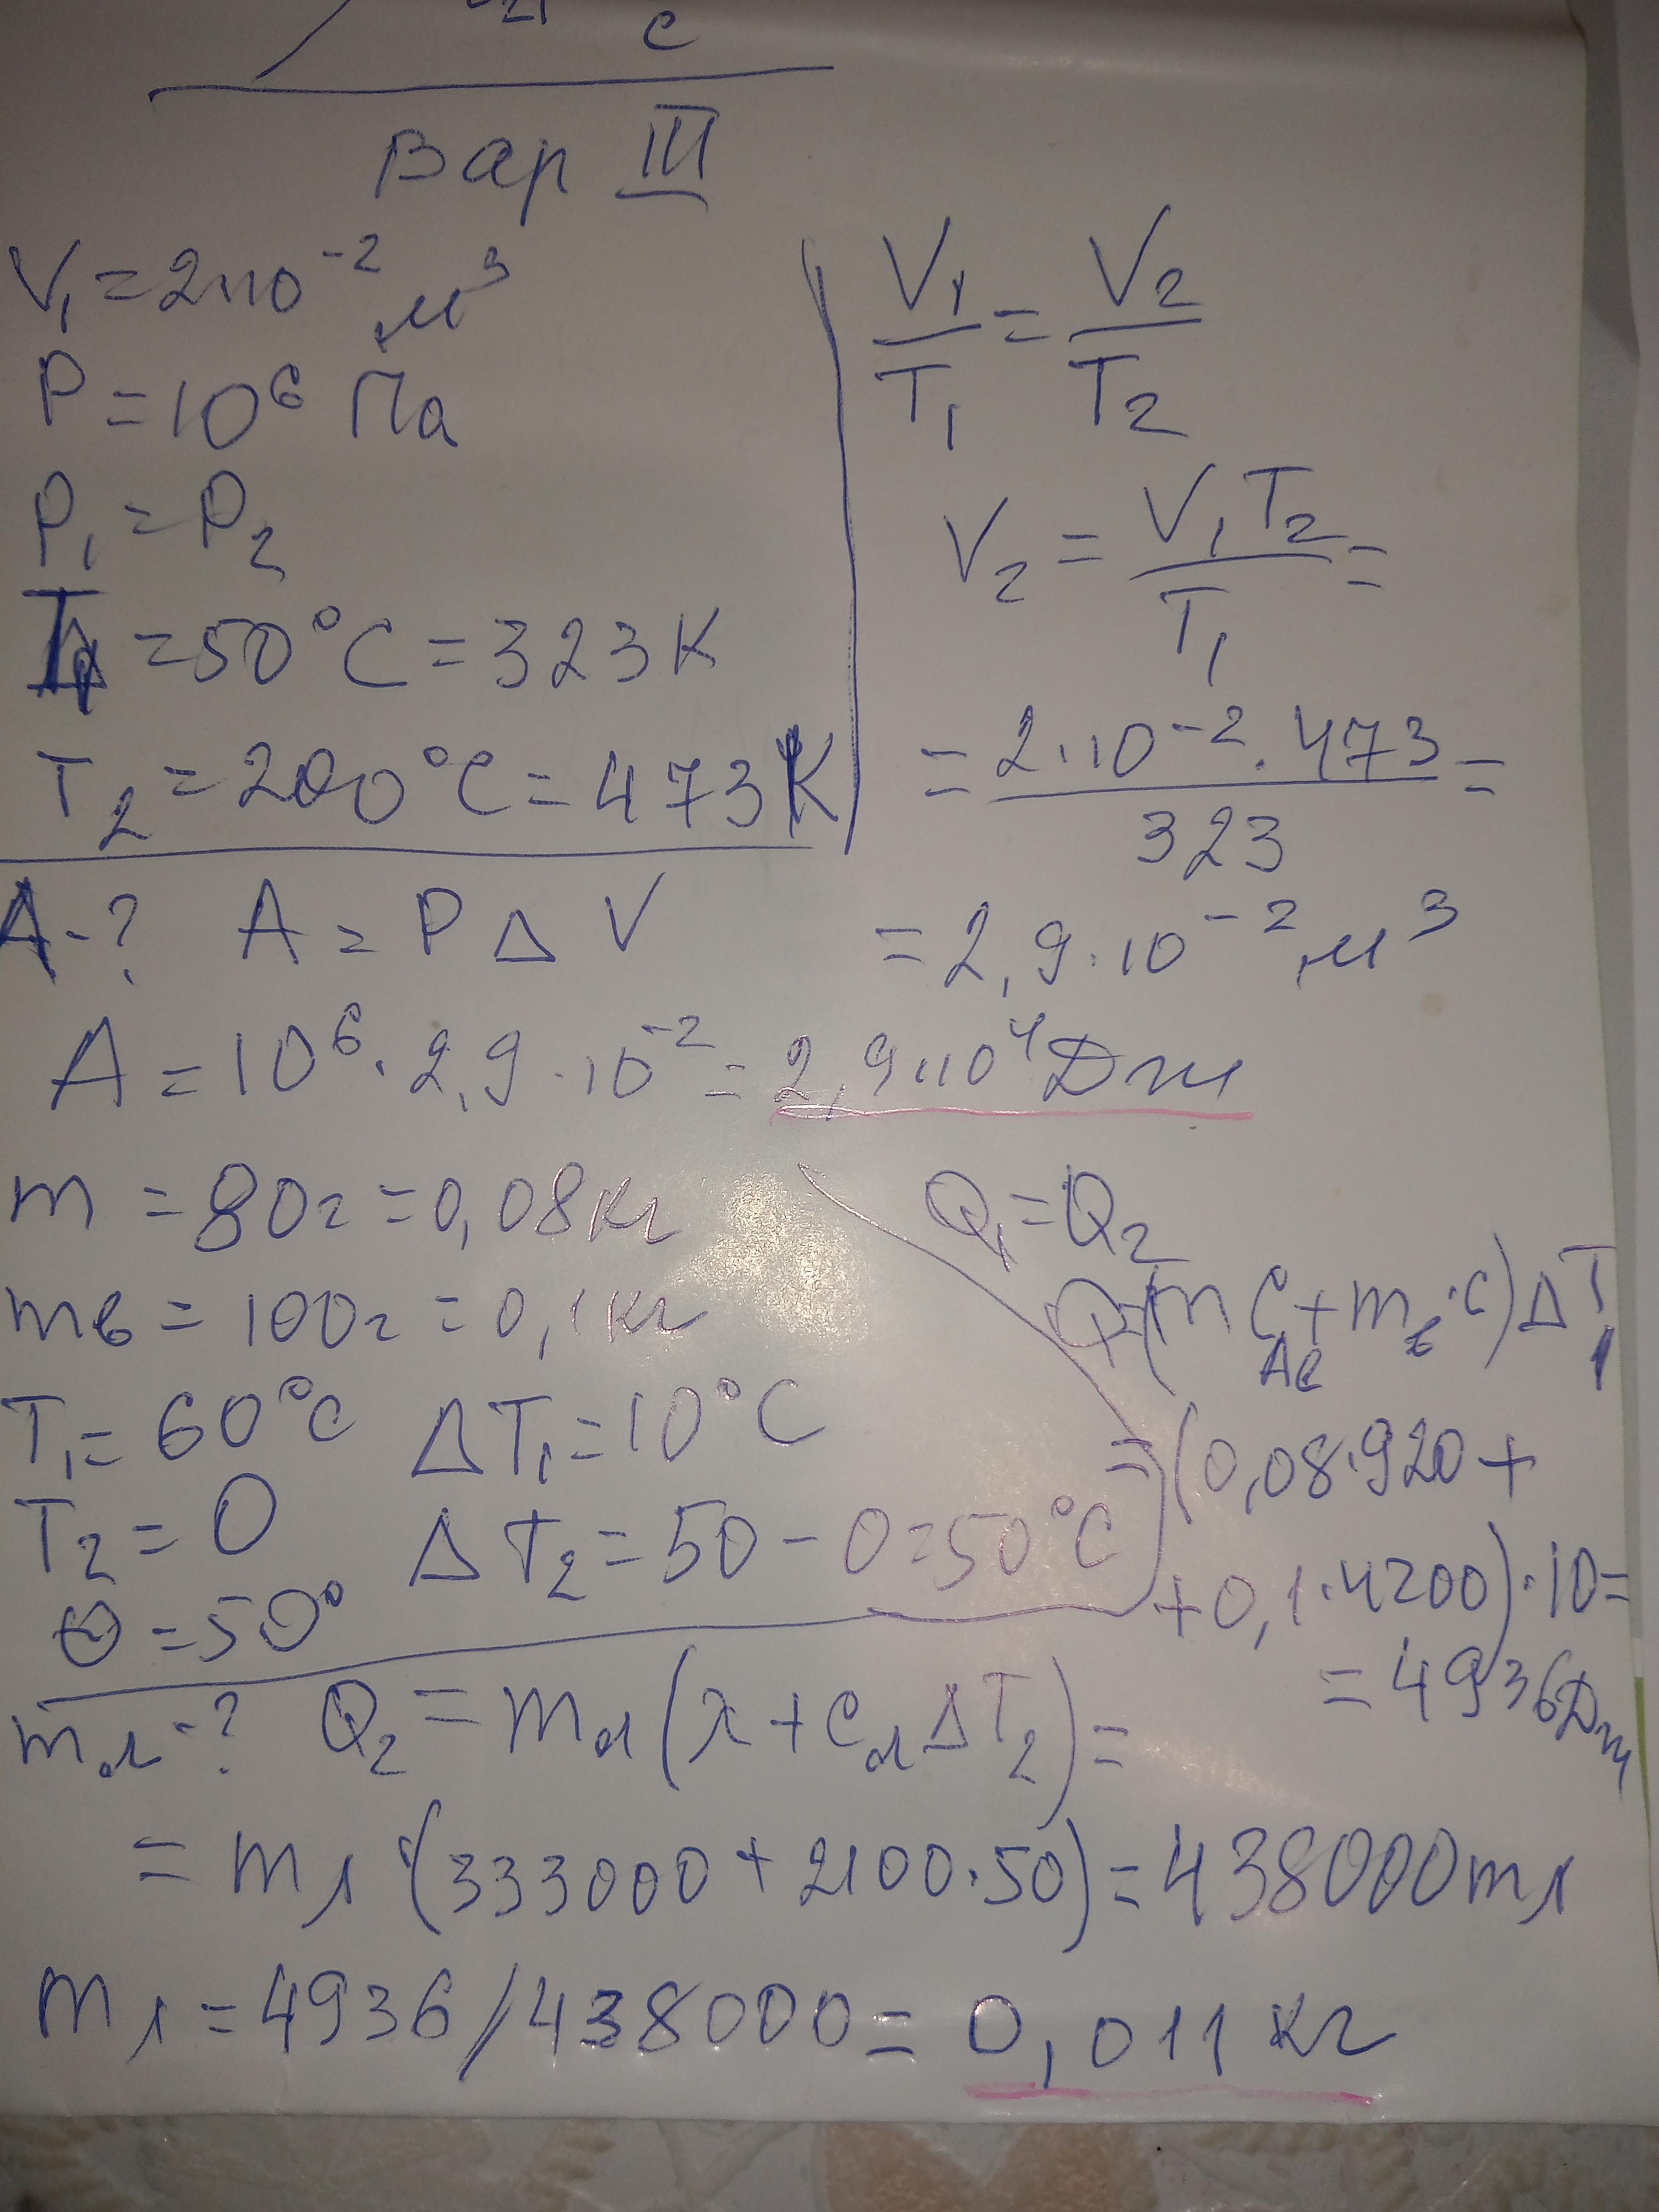 с
Вар III
V₁ = 2·10⁻² м³
P = 10⁶ Па
P₁ = P₂
T₁ = 50°C = 323 K
T₂ = 200°C = 473 K
A - ? A = P Δ V
V₁/T₁ = V₂/T₂
V₂ = V₁T₂/T₁ =
= 2·10⁻²·473/323 =
= 2,9·10⁻² м³
A = 10⁶ · 2,9 · 10⁻² = 2,9·10⁴ Дж
m = 80г = 0,08кг
mв = 100г = 0,1кг
T₁ = 60°C ΔT₁ = 10°C
T₂ = 0 ΔT₂ = 50 - 0 = 50°C
Θ = 50°
mл - ?
Q₁ = Q₂
Q=(m C_Al + m_в·C) ΔT₁
= (0,08·920 +
+ 0,1·4200)·10 =
= 4936Дж
Q₂ = mл (λ + cл ΔT₂) =
= mл·(333000 + 2100·50) = 438000mл
mл = 4936/438000 = 0,011 кг